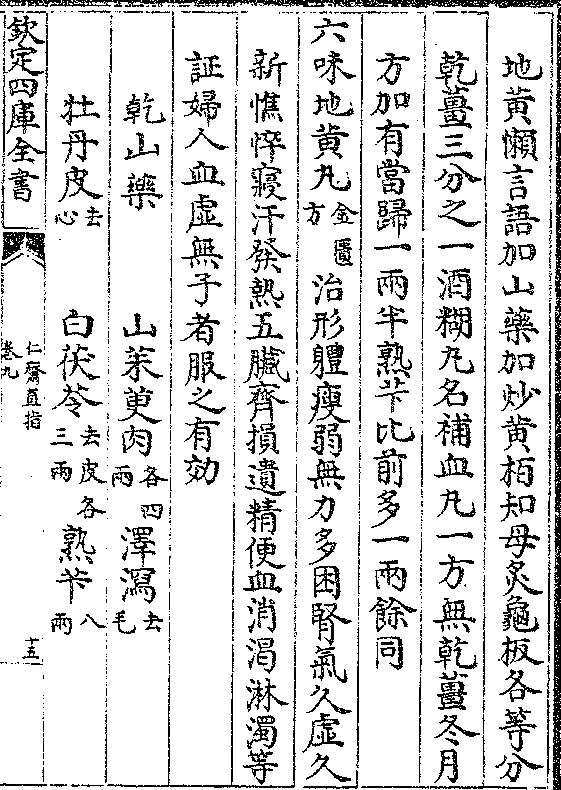 地黄懶言語加山藥加炒黄栢知母炙龜板各等分
乾薑三分之一酒糊丸名補血丸一方無乾薑冬月
方加有當歸一兩半熟芐比前多一兩餘同
六味地黄丸金匱方治形體瘦弱無力多困腎氣久虛久
新憔悴寢汗發熱五臟齊損遺精便血消渴淋濁等
証婦人血虛無子者服之有効
乾山藥 山茱萸肉各四兩 澤瀉去毛
牡丹皮去心 白茯苓去皮各三兩 熟芐八兩
欽定四庫全書
仁齋直指
卷九
十五